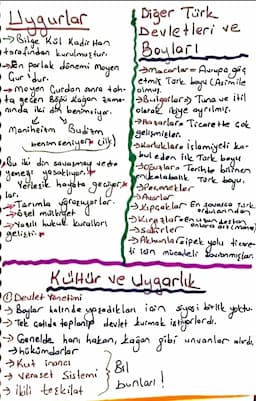 Uygurlar
→ Bilge Kül Kadir Han
tarafından kurulmuştur.
→ En parlak dönemi moyen
Çur'dur.
→ Moyen Çurdan sonra tah-
ta geçen Bögü Kağan zama-
nında iki din benimsiyor.
Maniheizm Budizm
benimseniyor (ilk)
Bu iki din savaşmayı ve
yemeyi yasaklıyor.
Yerleşik hayata geçiyor-
lar.
→ Tarımla uğraşıyorlar.
→ Özel mülkiyet
→ Yazılı hukuk kuralları
gelişti.
Diğer Türk
Devletleri ve
Boyları
→ Macarlar = Avrupa göç
etmiş Türk boyu (Asimile
olmuş.
→ Bulgarlar = Tuna ve itil
olarak ikiye ayrılmış.
→ Hazarlar = Ticarette çok
gelişmişler.
→ Karluklar = İslamiyeti ka-
bul eden ilk Türk boyu
→ Oğuzlar = Tarihte bilinen
en kalabalık Türk boyu.
→ Peçenekler
→ Avarlar
→ Kıpçaklar
→ Kırgızlar = en uzun destan
onlara ait (manas)
→ Sabirler
→ Akhunlar = ipek yolu ticare-
ti için mücadele
Kültür ve Uygarlık
① Devlet Yönetimi
→ Boylar halinde yaşadıkları için siyasi birlik yoktu.
→ Tek çatıda toplanıp devlet kurmak istiyorlardı.
→ Genelde hanı hakan, kağan gibi unvanlar alırdı
→ hükümdarlar
→ Kut inancı
→ Veraset Sistemi
→ ikili teşkilat
Bil
bunları!